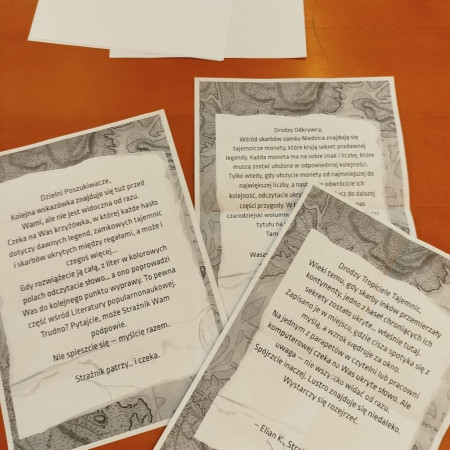 Dzielni Poszukiwacze,
Kolejna wskazówka znajduje się tuż przed
Wami, ale nie jest widoczna od razu.
Czeka na Was krzyżówka, w której każde hasło
dotyczy dawnych legend, zamkowych tajemnic
i skarbów ukrytych między regałami, a może i
czegoś więcej...
Gdy rozwiążecie ją całą, z liter w kolorowych
polach odczytacie słowo... a ono poprowadzi
Was do kolejnego punktu wyprawy. To pewna
część wśród Literatury popularnonaukowej.
Trudno? Pytajcie, może Strażnik Wam
podpowie.
Nie spieszcie się – myślcie razem.
Strażnik patrzy... i czeka.
Drodzy Odkrywcy,
Wśród skarbów zamku Niedzica znajdują się
tajemnicze monety, które kryją sekret pradawnej
legendy. Każda moneta ma na sobie znak i liczbę, które
muszą zostać ułożone w odpowiedniej kolejności.
Tylko wtedy, gdy ułożycie monety od najmniejszej do
największej liczby, a nast
odwrócicie ich
kolejność, odczytacie
do dalszej
części przygody. W
nas
czarodziejski wolumin
tytułu na
Tam
Wasz
Drodzy Tropiciele Tajemnic,
Wieki temu, gdy skarby Inków przemierzały
kontynenty, jedno z haseł chroniących ich
sekrety zostało ukryte... właśnie tutaj.
Zapisano je w miejscu, gdzie cisza spotyka się z
myślą, a wzrok wędruje za okno.
Na jednym z parapetów w czytelni lub pracowni
komputerowej czeka na Was ukryte słowo. Ale
uwaga – nie wszystko widać od razu.
Spójrzcie inaczej. Lustro znajduje się niedaleko.
Wystarczy się rozejrzeć.
– Elian K., Stra